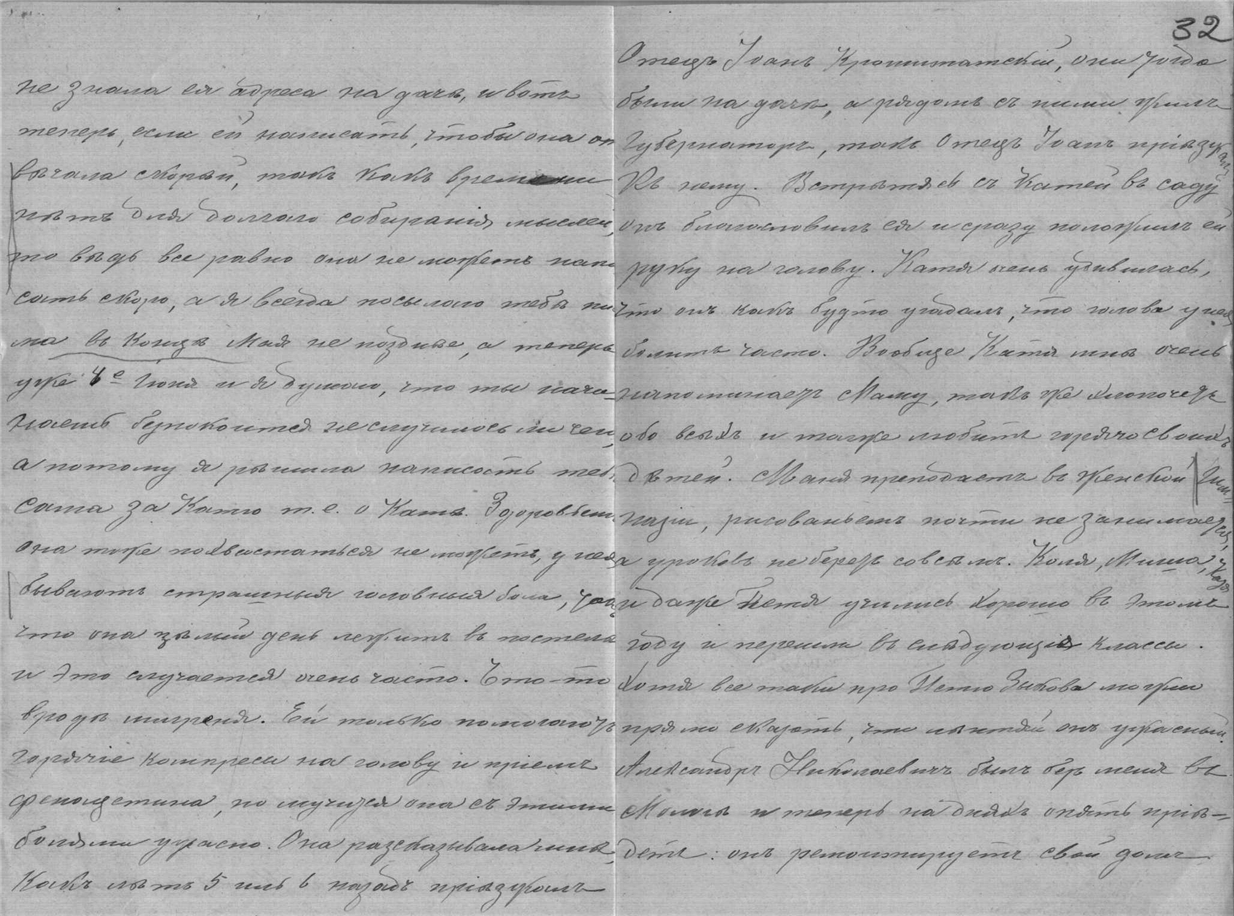 не знала ея адреса на дачѣ, и вотъ
теперь, если ей написать, чтобы она от
вѣчала скорѣй, такъ какъ времени
нѣтъ для долгаго собиранія мыслей,
то вѣдь все равно она не можетъ напи
сать скоро, а я всегда посылаю тебѣ пи
ма въ концѣ Мая не позднѣе, а теперь
уже 4е Іюня и я думаю, что ты начи-
наешь безпокоится не случилось ли чего,
а потому я рѣшила написать тебѣ
сама за Катю т.е. о Катѣ. Здоровьемъ
она тоже похвастаться не можетъ, у нея
бываютъ страшныя головныя боли, такъ
что она цѣлый день лежитъ въ постели
и это случается очень часто. Что-то
вродѣ мигреня. Ей только помогаютъ
горячіе компресы на голову и пріемъ
фенацетина, но мучится она съ этими
болями ужасно. Она разсказывала мнѣ,
какъ лѣтъ 5 иль 6 назадъ пріѣзжалъ
32
Отецъ Іоанъ Кронштатскій, они тогда
были на дачѣ, а рядомъ съ ними жилъ
Губернаторъ, такъ Отецъ Іоанъ пріѣзжалъ
къ нему. Встрѣтясь съ Катей въ саду
онъ благословилъ ея и сразу положилъ ей
руку на голову. Катя очень удивилась,
что онъ какъ будто угадалъ, что голова у нея
болитъ часто. Вообще Катя мнѣ очень
напоминаетъ Маму, такъ же хлопочетъ
обо всѣхъ и также любитъ горячо своихъ
дѣтей. Маня преподаетъ въ женской Гим-
назіи, рисованьемъ почти не занимается,
а уроковъ не беретъ совсѣмъ. Коля, Миша, Катя
и даже Петя учились хорошо въ этомъ
году и перешли въ слѣдующіе классы.
Хотя все таки про Петю Зыкова можно
прямо сказать, что лѣнтяй онъ ужасный.
Александръ Николаевичъ былъ безъ меня въ
Мологѣ и теперь на дняхъ опять пріѣ-
детъ: онъ ремонтируетъ свой домъ